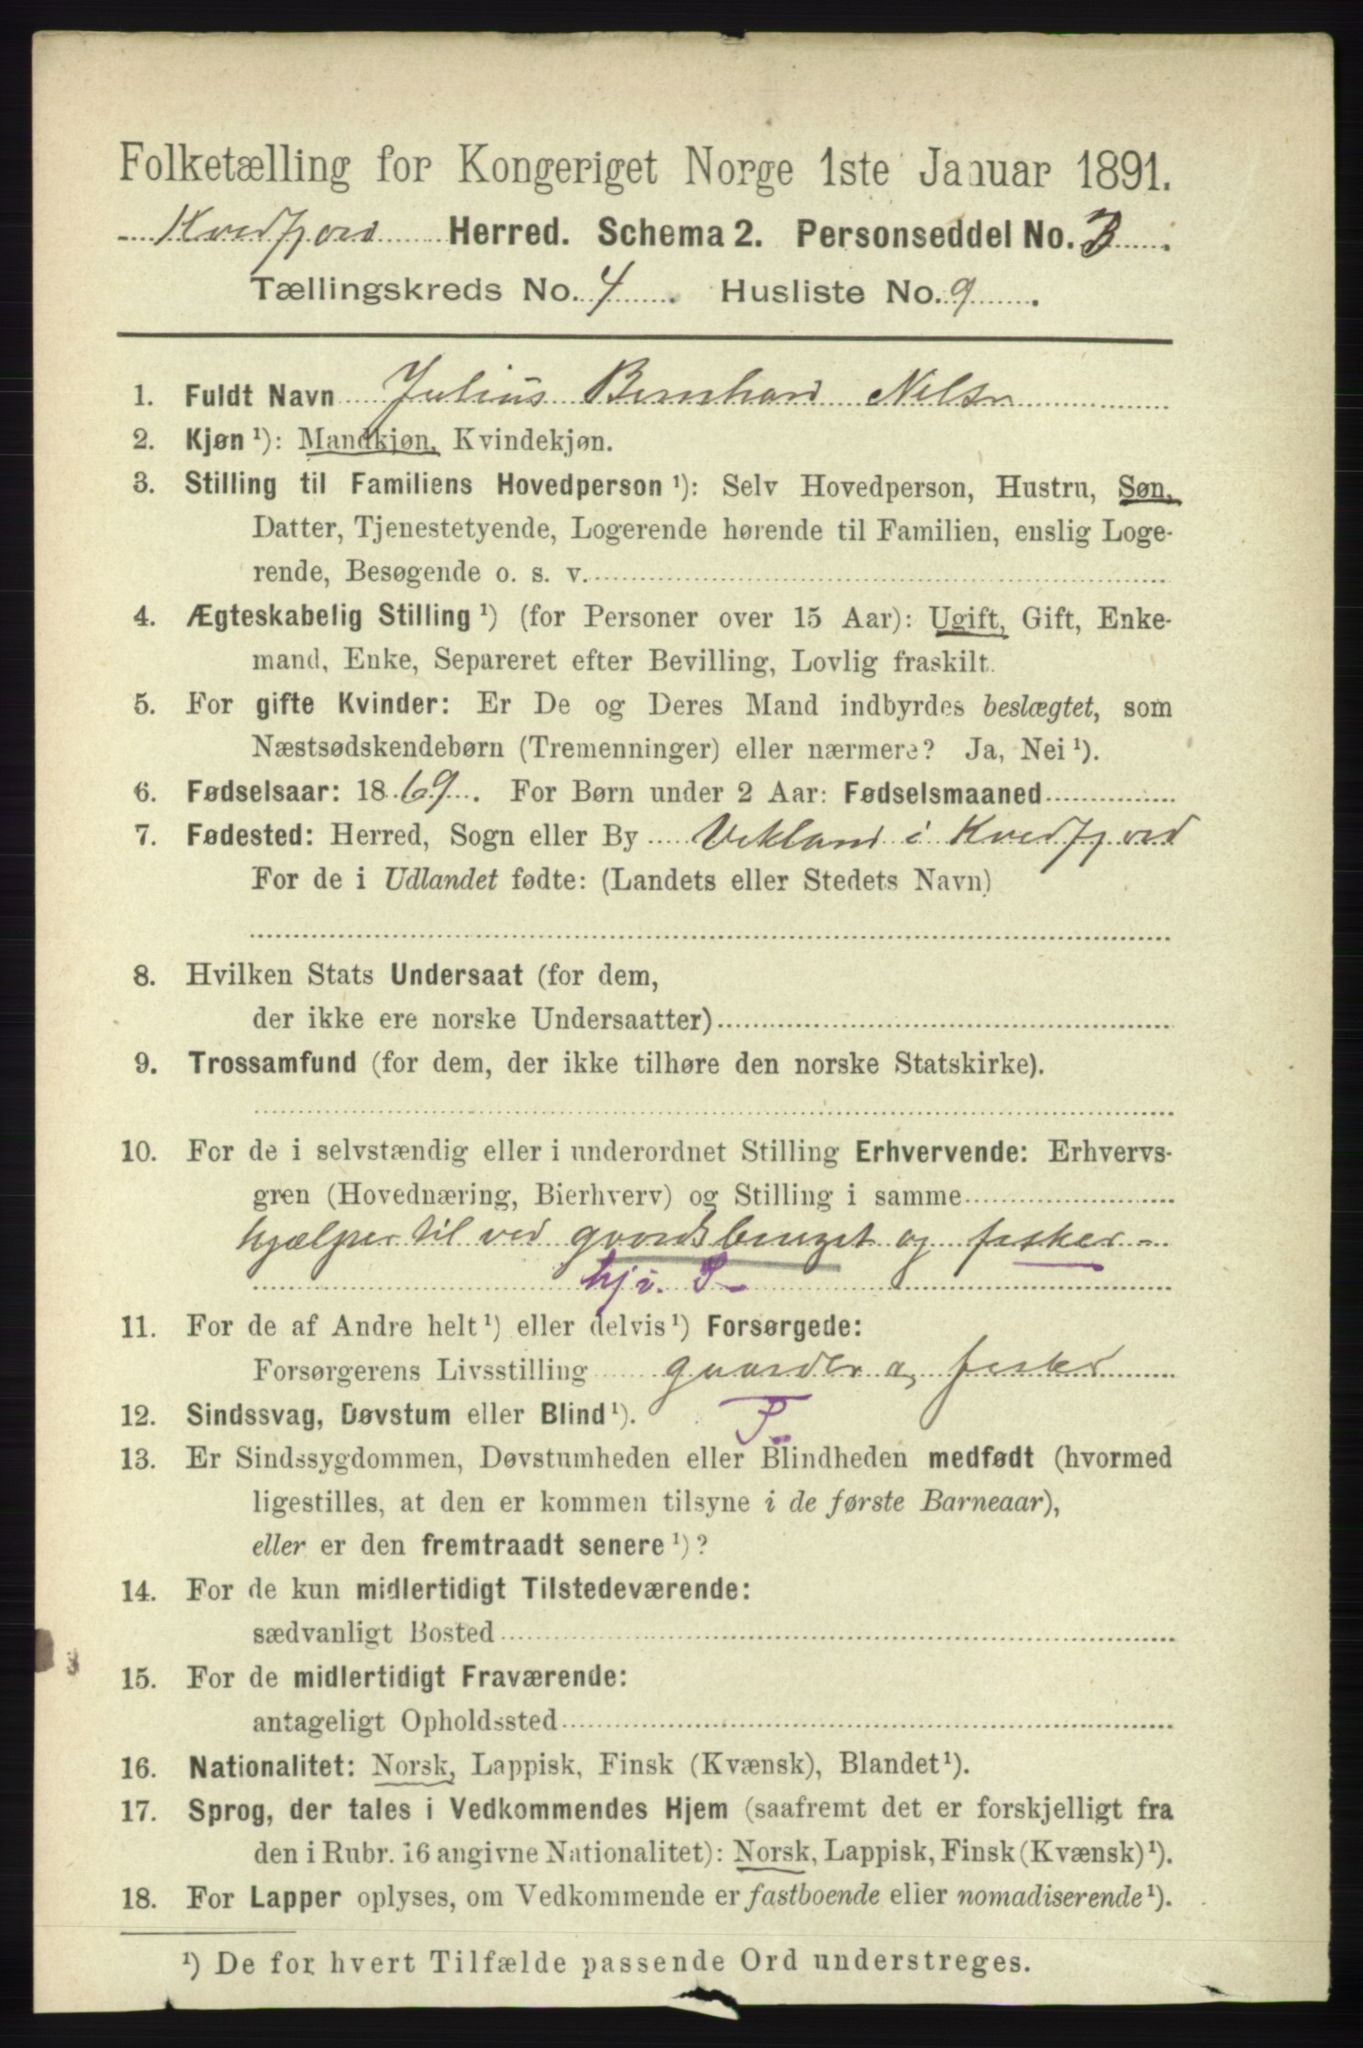 Folketælling for Kongeriget Norge 1ste Januar 1891.
Kvedfjord Herred. Schema 2. Personseddel No. 3.
Tællingskreds No. 4. Husliste No. 9.
1. Fuldt Navn Julius Bernhard Nilsen
2. Kjøn ¹): Mandkjøn, Kvindekjøn.
3. Stilling til Familiens Hovedperson ¹): Selv Hovedperson, Hustru, Søn,
Datter, Tjenestetyende, Logerende hørende til Familien, enslig Loge-
rende, Besøgende o. s. v.
4. Ægteskabelig Stilling ¹) (for Personer over 15 Aar): Ugift, Gift, Enke-
mand, Enke, Separeret efter Bevilling, Lovlig fraskilt.
5. For gifte Kvinder: Er De og Deres Mand indbyrdes beslægtet, som
Næstsødskendebørn (Tremenninger) eller nærmere? Ja, Nei ¹).
6. Fødselsaar: 1869. For Børn under 2 Aar: Fødselsmaaned
7. Fødested: Herred, Sogn eller By Vikland i Kvedfjord
For de i Udlandet fødte: (Landets eller Stedets Navn)
8. Hvilken Stats Undersaat (for dem,
der ikke ere norske Undersaatter)
9. Trossamfund (for dem, der ikke tilhøre den norske Statskirke).
10. For de i selvstændig eller i underordnet Stilling Erhvervende: Erhvervs-
gren (Hovednæring, Bierhverv) og Stilling i samme
hjælper til ved gaardsbruget og fisker -
11. For de af Andre helt ¹) eller delvis ¹) Forsørgede:
Forsørgerens Livsstilling gaardbr og fisker
F
12. Sindssvag, Døvstum eller Blind ¹).
13. Er Sindssygdommen, Døvstumheden eller Blindheden medfødt (hvormed
ligestilles, at den er kommen tilsyne i de første Barneaar),
eller er den fremtraadt senere ¹)?
14. For de kun midlertidigt Tilstedeværende:
sædvanligt Bosted
15. For de midlertidigt Fraværende:
antageligt Opholdssted
16. Nationalitet: Norsk, Lappisk, Finsk (Kvænsk), Blandet ¹).
17. Sprog, der tales i Vedkommendes Hjem (saafremt det er forskjelligt fra
den i Rubr. 16 angivne Nationalitet): Norsk, Lappisk, Finsk (Kvænsk) ¹).
18. For Lapper oplyses, om Vedkommende er fastboende eller nomadiserende ¹).
¹) De for hvert Tilfælde passende Ord understreges.